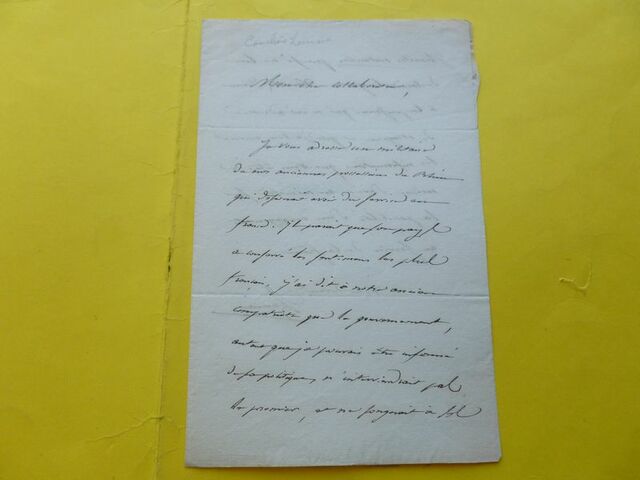 Mon cher collaborateur,
Je vous adresse un militaire
de nos anciennes possessions du Rhin
qui désirerait avoir du service en
france. Il parait que son pays
a conservé les sentimens les plus
français, j'ai dit à notre ancien
compatriote que le gouvernement,
autant que je pouvais être informé
de sa politique, n'interviendrait pas
le premier, et ne songerait à